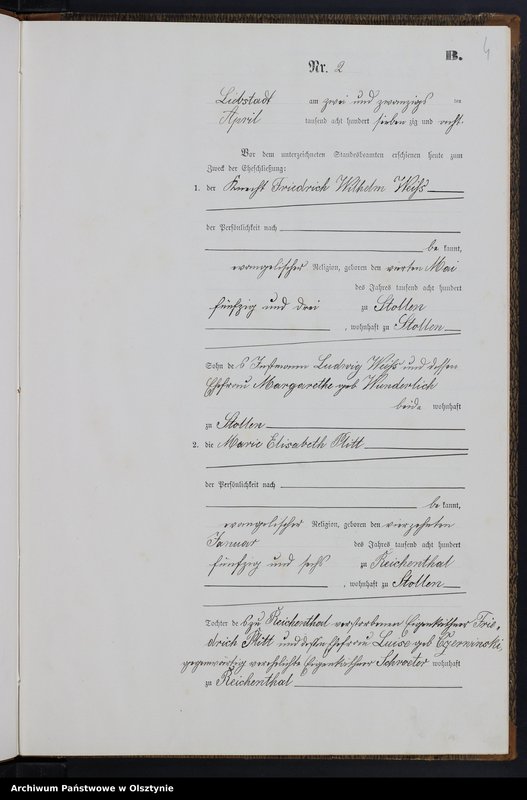 B.
4
Nr. 2
Liebstadt am zwei und zwanzigs ten
April tausend acht hundert sieben zig und acht.
Vor dem unterzeichneten Standesbeamten erschienen heute zum
Zweck der Eheschließung:
1. der Knecht Friedrich Wilhelm Weiß
der Persönlichkeit nach
be kannt,
evangelischer Religion, geboren den vierten Mai
des Jahres tausend acht hundert
fünfzig und drei zu Stollen
, wohnhaft zu Stollen
Sohn des Instmann Ludwig Weiß und dessen
Ehefrau Margarethe geb Wunderlich
beide wohnhaft
zu Stollen
2. die Marie Elisabeth Plitt
der Persönlichkeit nach
be kannt,
evangelischer Religion, geboren den vierzehnten
Januar des Jahres tausend acht hundert
fünfzig und sechs zu Reichenthal
, wohnhaft zu Stollen
Tochter des zu Reichenthal verstorbenen Eigenkäthner Frie-
drich Plitt und dessen Ehefrau Luise geb
gegenwärtig verehelichte Eigenkäthner Schroeter wohnhaft
zu Reichenthal
Archiwum Państwowe w Olsztynie